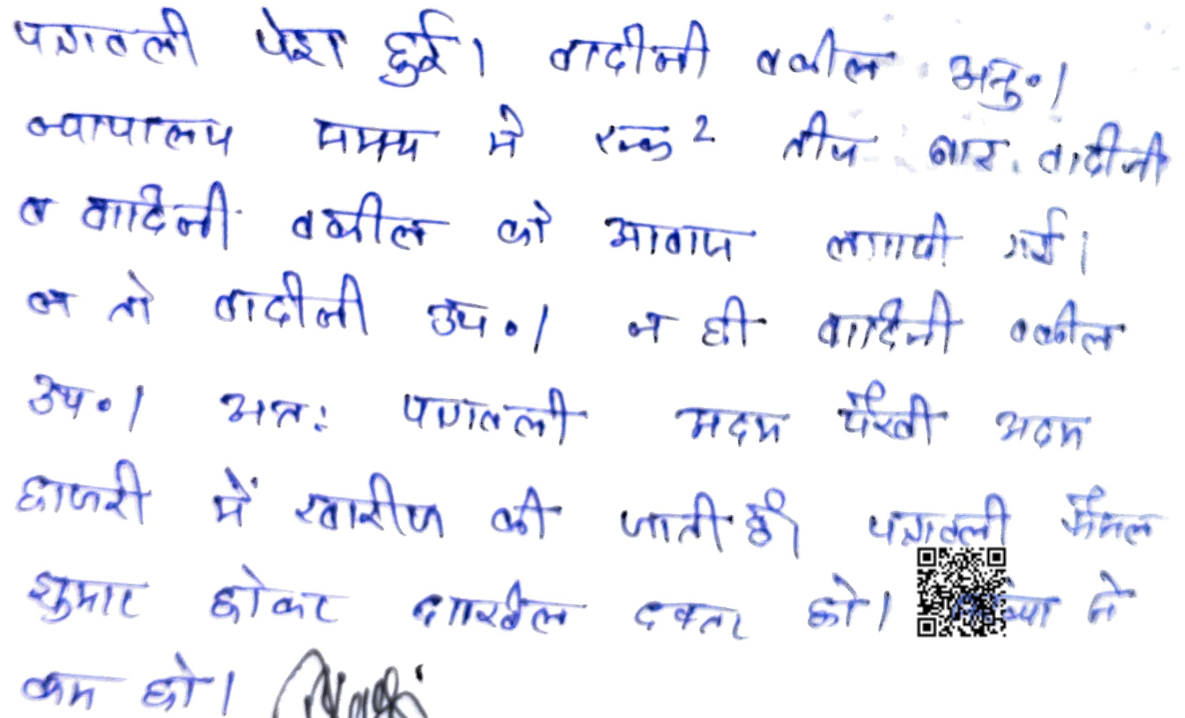 पत्रावली पेश हुई। वादीनी वकील अनु०।
न्यायालय समय मे रूक २ तीन बार वादीनी
व वादिनी वकील को आवाज लगायी गई।
न तो वादीनी उप०। न ही वादिनी वकील
उप०। अतः पत्रावली अदम पैरवी अदम
हाजरी में खारीज की जाती है। पत्रावली फैसल
शुमार होकर दाखिल दफ्तर हो। मे
कम हो।